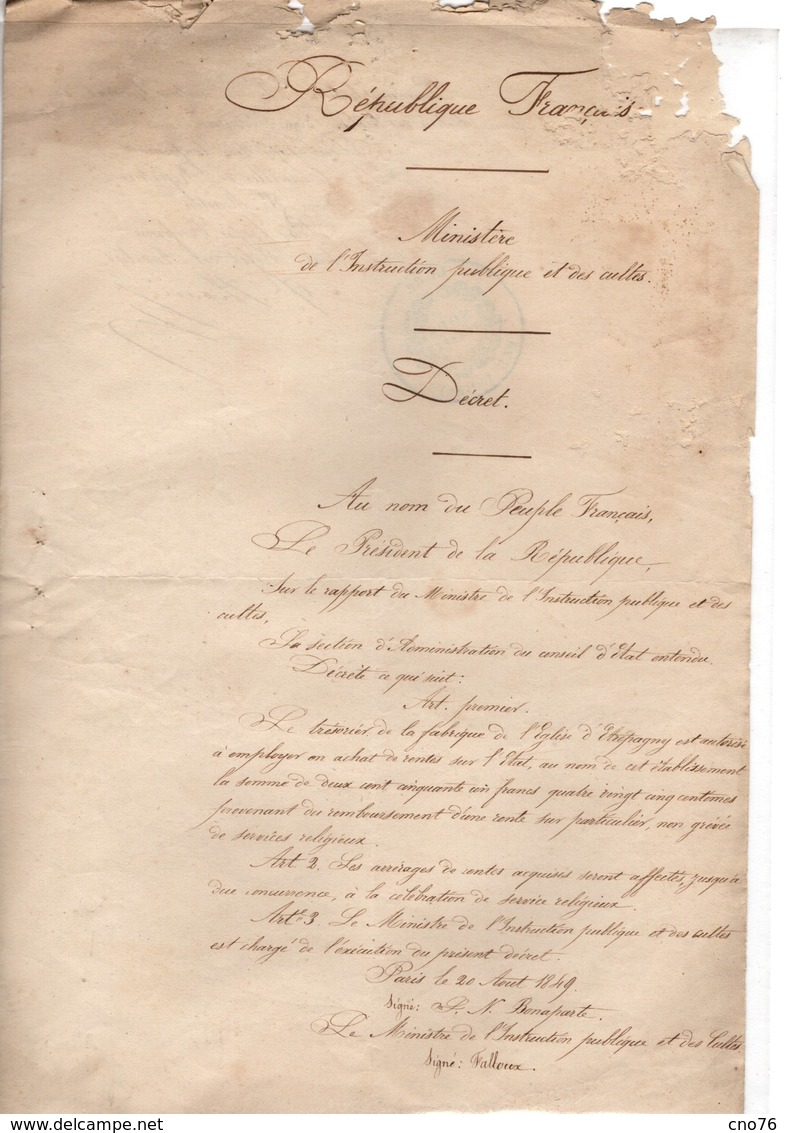 République Français
Ministère
de l'Instruction publique et des cultes.
Décret.
Au nom du Peuple Français,
Le Président de la République,
Sur le rapport du Ministre de l'Instruction publique et des
cultes,
La section d'Administration du conseil d'Etat entendu,
Décrète ce qui suit:
Art. premier.
Le trésorier de la fabrique de l'Eglise d'Etrépagny est autorisé
à employer en achat de rentes sur l'Etat, au nom de cet établissement
la somme de deux cent cinquante cinq francs quatre vingt cinq centimes
provenant du remboursement d'une rente sur particulier, non grévée
de services religieux.
Art 2. Les arrérages de rentes acquises seront affectés, jusqu'à
due concurrence, à la célébration de service religieux.
Art. 3. Le Ministre de l'Instruction publique et des cultes
est chargé de l'éxécution du présent décret.
Paris le 20 Aout 1849.
Signé: L. N. Bonaparte.
Le Ministre de l'Instruction publique et des Cultes.
Signé: Falloux.
cno76